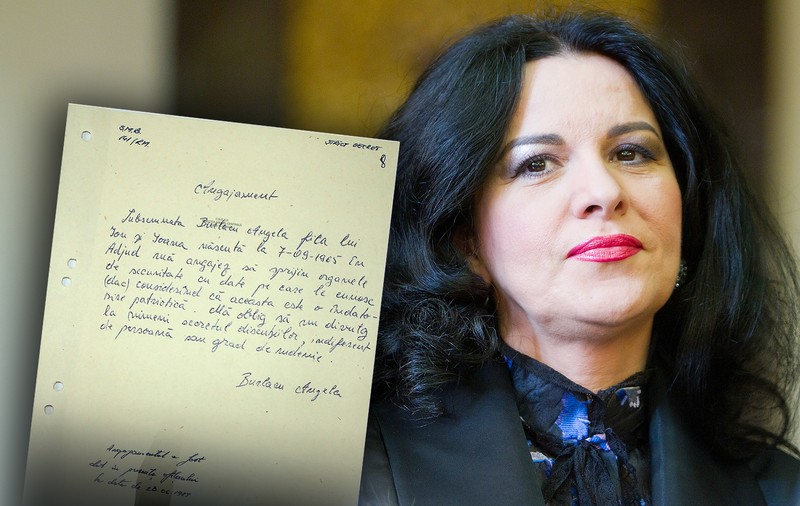 STRICT SECRET
8
Angajament
Subsemnata Burlacu Angela fiica lui
Ion și Ioana născută la 7-09-1965 în
Adjud mă angajez să sprijin organele
de securitate cu date pe care le cunosc
(dac) considerînd că aceasta este o îndato-
rire patriotică. Mă oblig să nu divulg
la nimeni secretul discuțiilor, indiferent
de persoană sau grad de rudenie.
Burlacu Angela
Angajamentul a fost
dat în prezența ofițerului
la data de